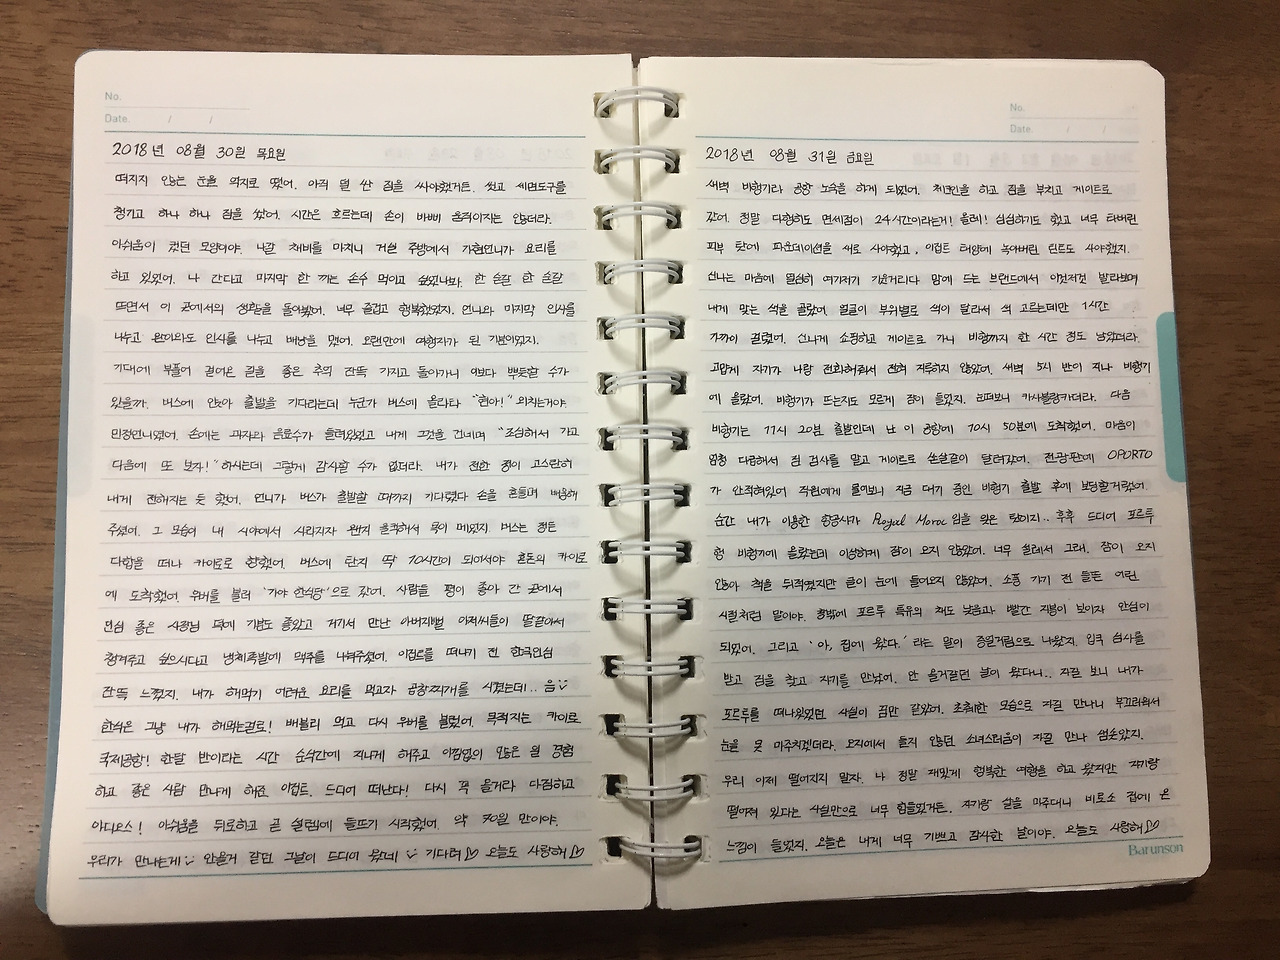 No.
Date. / /
2018년 08월 30일 목요일
떠지지 않는 눈을 억지로 떴어. 아직 덜 싼 짐을 싸야했거든. 씻고 세면도구를
챙기고 하나 하나 짐을 쌌어. 시간은 흐르는데 손이 바삐 움직이지는 않더라.
아쉬움이 컸던 모양이야. 나갈 채비를 마치니 거실 주방에서 가현언니가 요리를
하고 있었어. 나 간다고 마지막 한 끼는 손수 먹이고 싶었나봐. 한 숟갈 한 숟갈
뜨면서 이 곳에서의 생활을 돌아봤어. 너무 즐겁고 행복했었지. 언니와 마지막 인사를
나누고 윤이와도 인사를 나누고 배낭을 맸어. 오랜만에 여행자가 된 기분이었지.
기대에 부풀어 걸어온 길을 좋은 추억 잔뜩 가지고 돌아가니 이보다 뿌듯할 수가
있을까. 버스에 앉아 출발을 기다리는데 누군가 버스에 올라타 "현아!" 외치는거야.
민정언니였어. 손에는 과자와 음료수가 들려있었고 내게 그것을 건네며 "조심해서 가고
다음에 또 보자!" 하시는데 그렇게 감사할 수가 없더라. 내가 전한 정이 고스란히
내게 전해지는 듯 했어. 언니가 버스가 출발할 때까지 기다렸다 손을 흔들며 배웅해
주셨어. 그 모습이 내 시야에서 사라지자 왠지 울컥해서 목이 메였지. 버스는 정든
다합을 떠나 카이로로 향했어. 버스에 탄지 딱 10시간이 되어서야 혼돈의 카이로
에 도착했어. 우버를 불러 '가야 한식당'으로 갔어. 사람들 평이 좋아 간 곳에서
인심 좋은 사장님 덕에 기분도 좋았고 거기서 만난 아버지뻘 아저씨들이 딸같아서
챙겨주고 싶으시다고 냉채족발에 맥주를 나눠주셨어. 이집트를 떠나기 전 한국인심
잔뜩 느꼈지. 내가 해먹기 어려운 요리를 먹고자 곱창찌개를 시켰는데.. 음
한식은 그냥 내가 해먹는걸로! 배불리 먹고 다시 우버를 불렀어. 목적지는 카이로
국제공항! 한달 반이라는 시간 순식간에 지나게 해주고 아낌없이 많은 걸 경험
하고 좋은 사람 만나게 해준 이집트. 드디어 떠난다! 다시 꼭 올거라 다짐하고
아디오스! 아쉬움을 뒤로하고 곧 설렘에 들뜨기 시작했어. 약 70일 만이야.
우리가 만나는게 안올거 같던 그날이 드디어 왔네 기다려♡ 오늘도 사랑해♡
No.
Date. / /
2018년 08월 31일 금요일
새벽 비행기라 공항 노숙을 하게 되었어. 체크인을 하고 짐을 부치고 게이트로
갔어. 정말 다행히도 면세점이 24시간이라는거! 올레! 심심하기도 했고 너무 타버린
피부 탓에 파운데이션을 새로 사야했고, 이집트 태양에 녹아버린 틴트도 사야했지.
신나는 마음에 열심히 여기저기 기웃거리다 맘에 드는 브랜드에서 이것저것 발라보며
내게 맞는 색을 골랐어. 얼굴이 부위별로 색이 달라서 색 고르는데만 1시간
가까이 걸렸어. 신나게 쇼핑하고 게이트로 가니 비행까지 한 시간 정도 남았더라.
고맙게 자기가 나랑 전화해줘서 전혀 지루하지 않았어. 새벽 5시 반이 지나 비행기
에 올랐어. 비행기가 뜨는지도 모르게 잠이 들었지. 눈떠보니 카사블랑카더라. 다음
비행기는 11시 20분 출발인데 난 이 공항에 10시 50분에 도착했어. 마음이
엄청 다급해서 짐 검사를 맡고 게이트로 쏜살같이 달려갔어. 전광판에 OPORTO
가 안적혀있어 직원에게 물어보니 지금 대기 중인 비행기 출발 후에 보딩할거랬어.
순간 내가 이용한 항공사가 Royal Maroc 임을 잊은 탓이지.. 후후 드디어 포르투
행 비행기에 올랐는데 이상하게 잠이 오지 않았어. 너무 설레서 그래. 잠이 오지
않아 책을 뒤적였지만 글이 눈에 들어오지 않았어. 소풍 가기 전 들뜬 어린
시절처럼 말이야. 창밖에 포르투 특유의 채도 낮음과 빨간 지붕이 보이자 안심이
되었어. 그리고 '아, 집에 왔다.' 라는 말이 중얼거림으로 나왔지. 입국 심사를
받고 짐을 찾고 자기를 만났어. 안 올거같던 날이 왔다니.. 자길 보니 내가
포르투를 떠나있었던 사실이 꿈만 같았어. 초췌한 모습으로 자길 만나니 부끄러워서
눈을 못 마주치겠더라. 오지에서 들지 않던 소녀스러움이 자길 만나 샘솟았지.
우리 이제 떨어지지 말자. 나 정말 재밌게 행복한 여행을 하고 왔지만 자기랑
떨어져 있다는 사실만으로 너무 힘들었거든. 자기랑 살을 마주대니 비로소 집에 온
느낌이 들었지. 오늘은 내게 너무 기쁘고 감사한 날이야. 오늘도 사랑해♡
Barunson